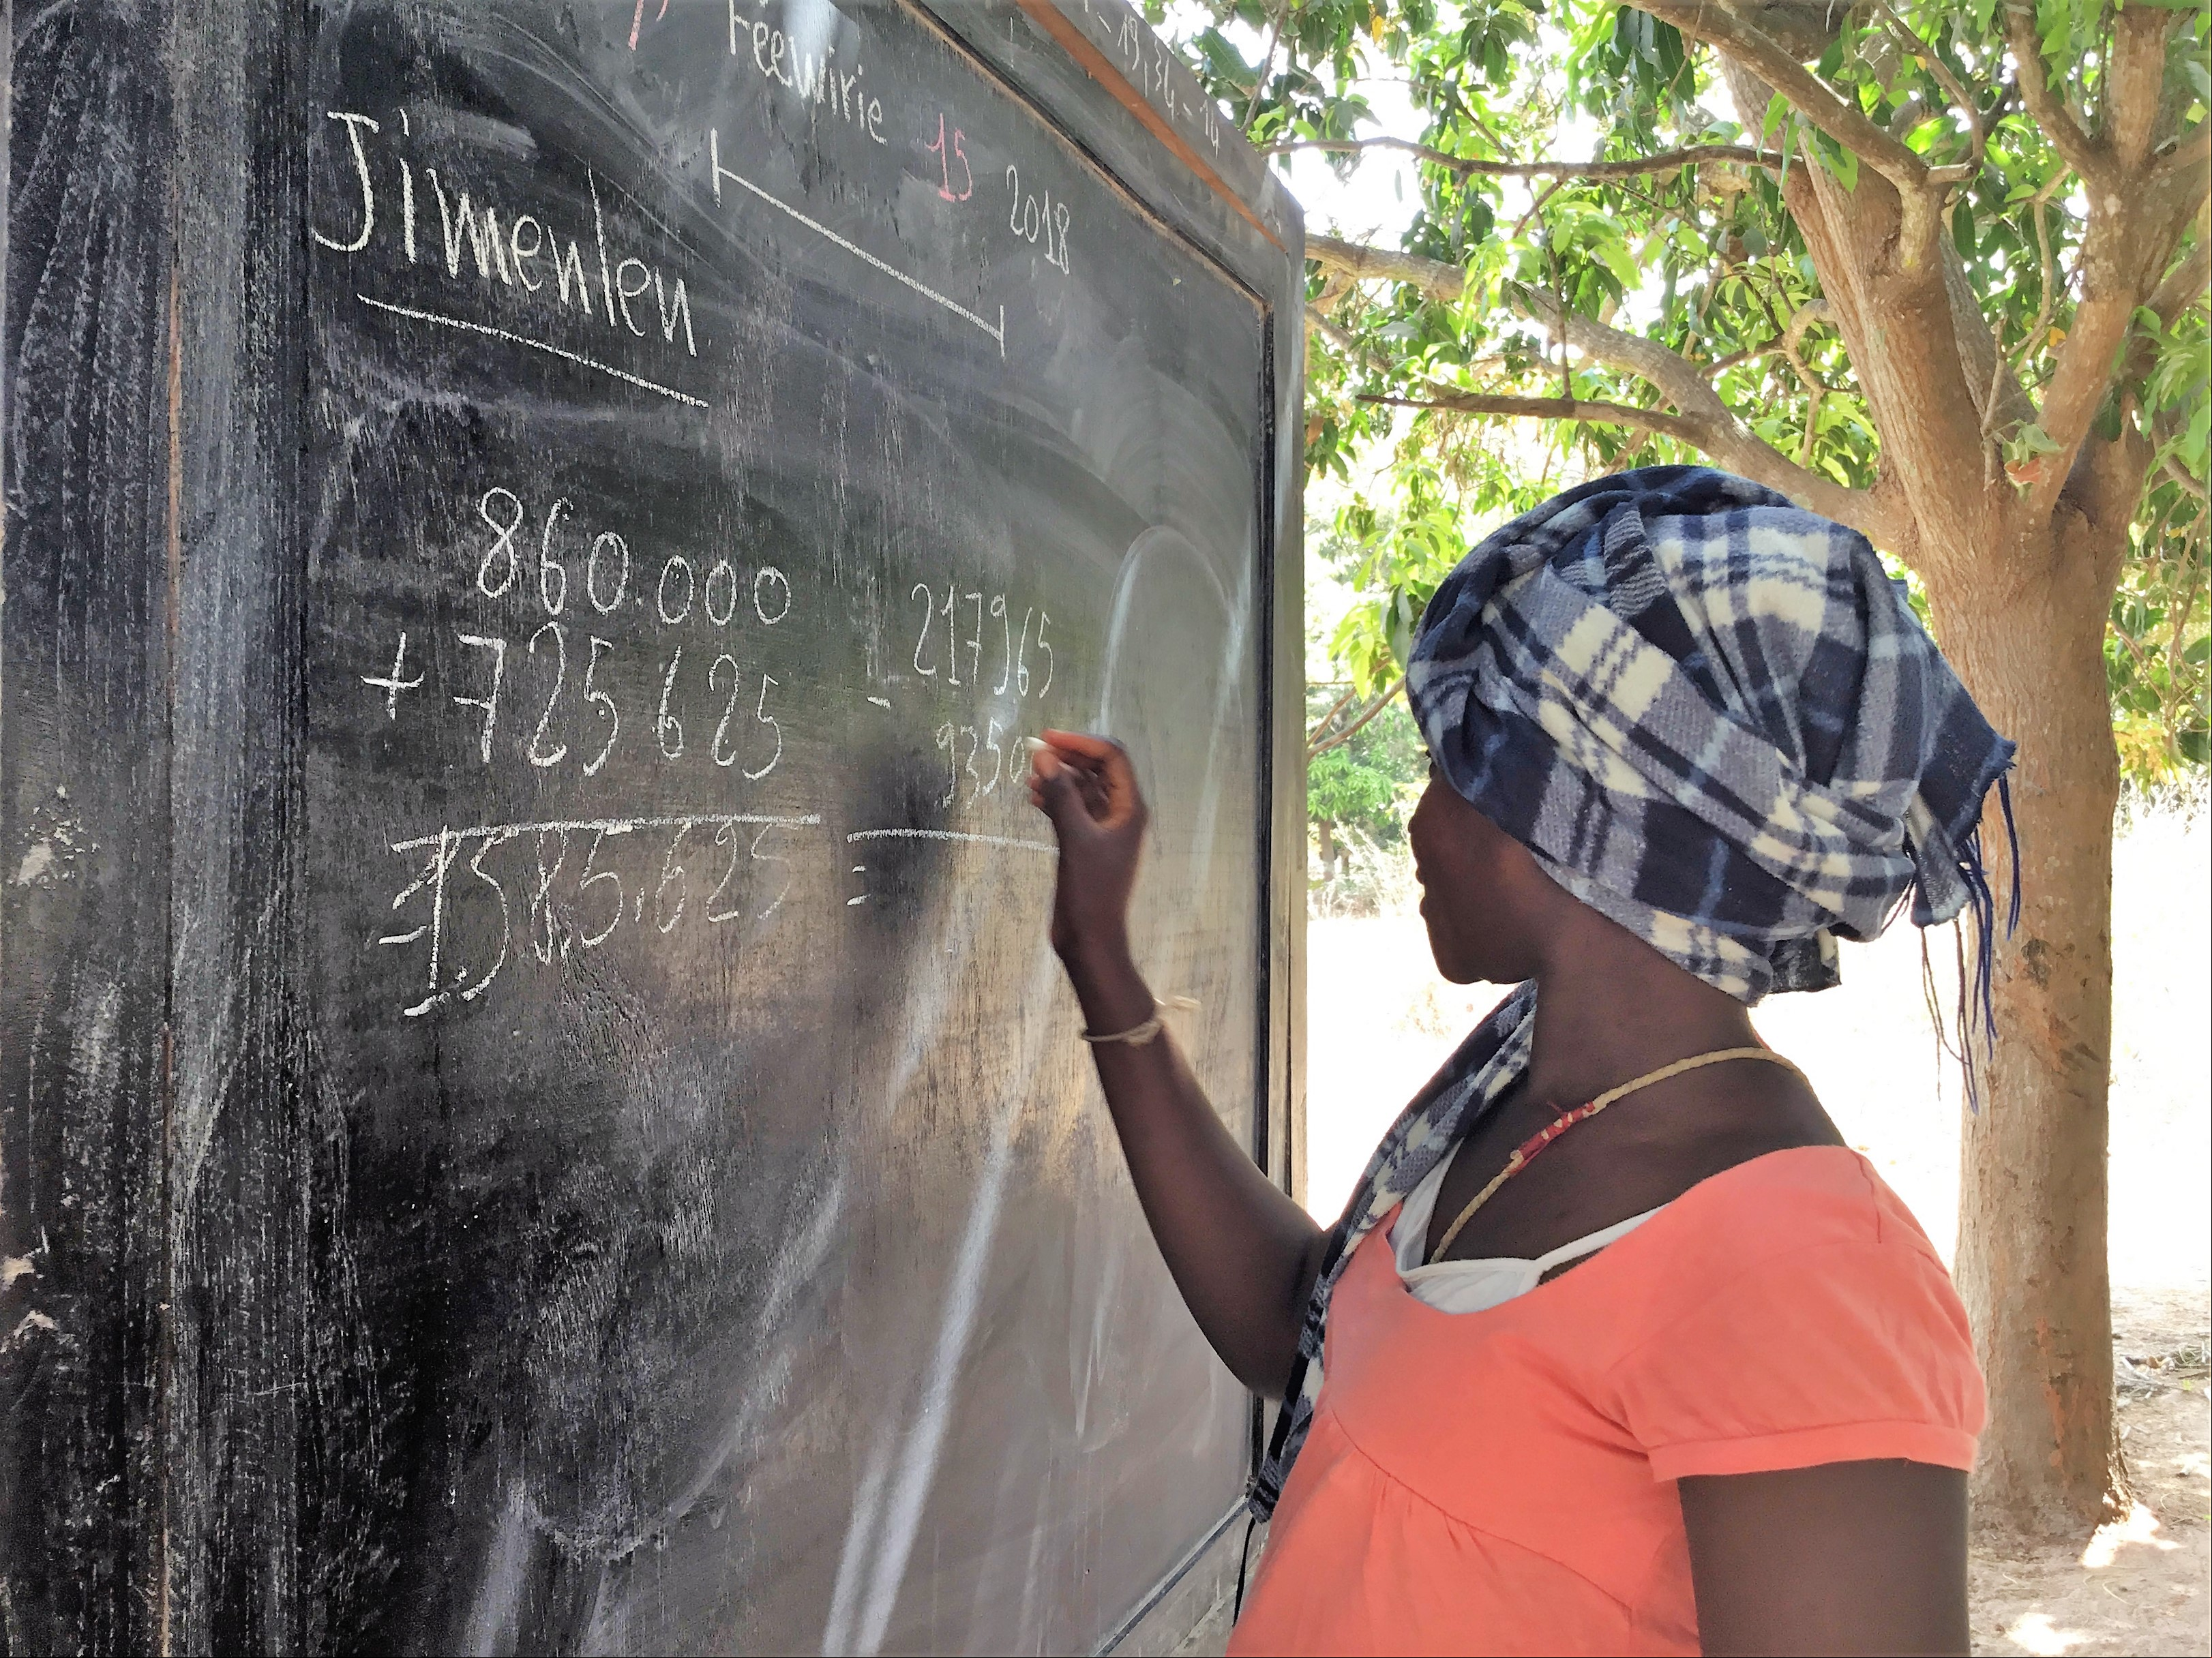 Féewirie 15 2018
- 19, 34 - 14
Jimenlen
860.000
+ 725.625
= 1.585.625
217965
-
9350
=